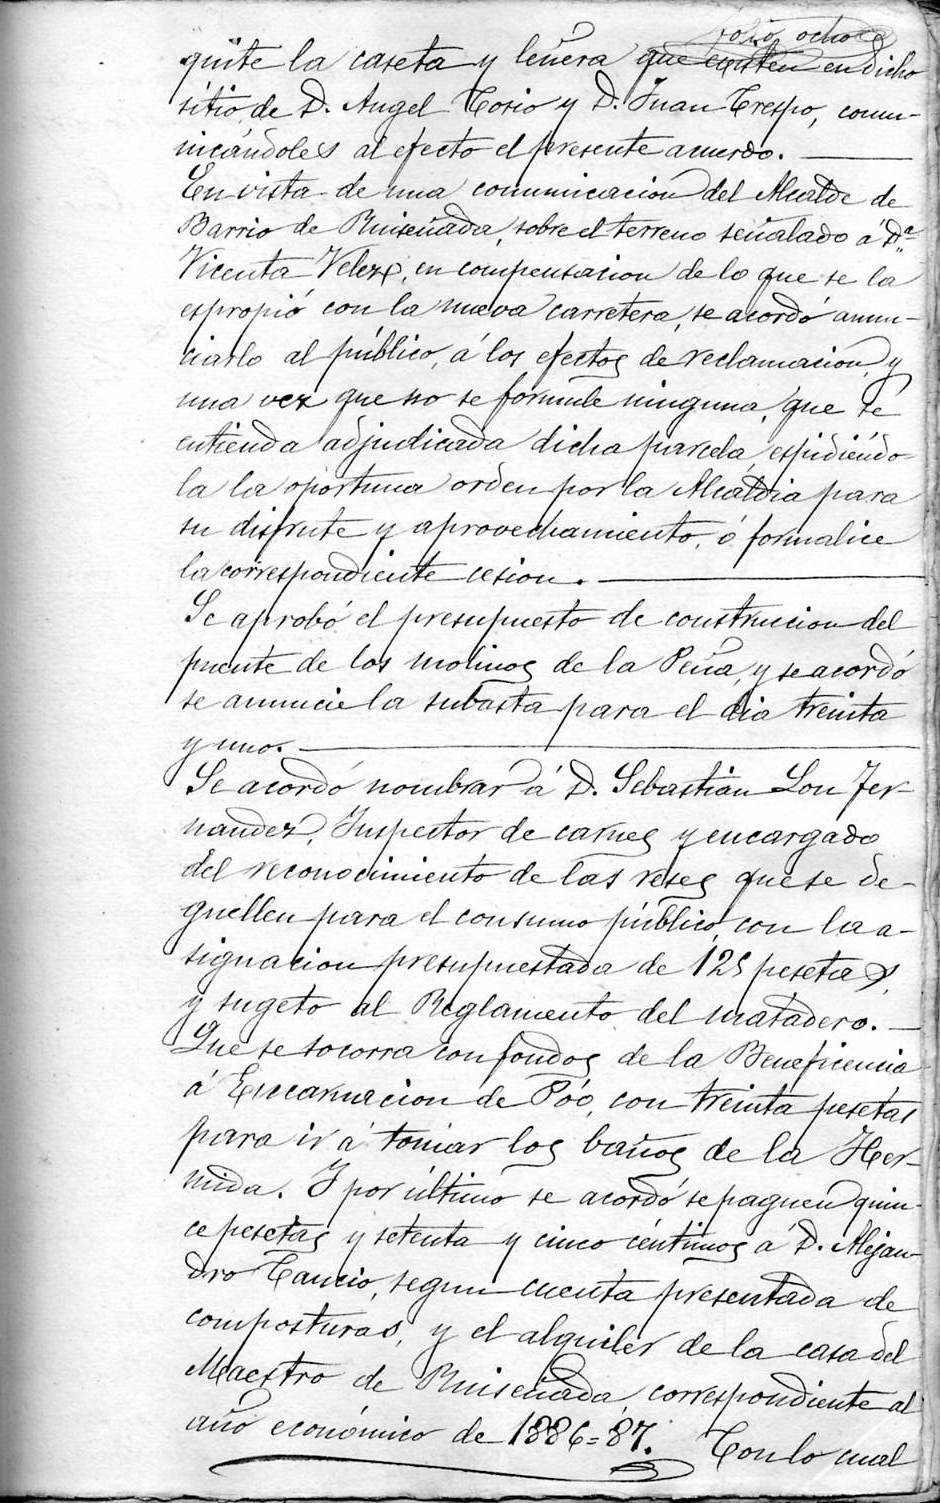 folio ocho
quite la caseta y leñera que existen en dicho
sitio, de D. Angel Cosio y D. Juan Crespo, comu-
nicándoles al efecto el presente acuerdo.
En vista de una comunicacion del Alcalde de
Barrio de Ruiseñada, sobre el terreno señalado á D.ª
Vicenta Velez, en compensacion de lo que se la
espropió con la nueva carretera, se acordó anun-
ciarlo al público, á los efectos de reclamacion, y
una vez que no se formule ninguna, que se
entienda adjudicada dicha parcela, espidiéndo-
la la oportuna orden por la Alcaldia para
su disfrute y aprovechamiento, ó formalice
la correspondiente cesion.
Se aprobó el presupuesto de construccion del
puente de los molinos de la Peña, y se acordó
se anuncie la subasta para el dia treinta
y uno.
Se acordó nombrar á D. Sebastian Lou Fer-
nandez, Inspector de carnes y encargado
del reconocimiento de las reses que se de-
guellen para el consumo público, con la a-
signacion presupuestada de 125 pesetas,
y sugeto al Reglamento del matadero.
Que se socorra con fondos de la Beneficencia
á Encarnacion de Póo, con treinta pesetas
para ir á tomar los baños de la Her-
mida. Y por último se acordó se paguen quin-
ce pesetas y setenta y cinco céntimos á D. Alejan-
dro Cancio, segun cuenta presentada de
composturas, y el alquiler de la casa del
Maestro de Ruiseñada, correspondiente al
año económico de 1886=87. Con lo cual